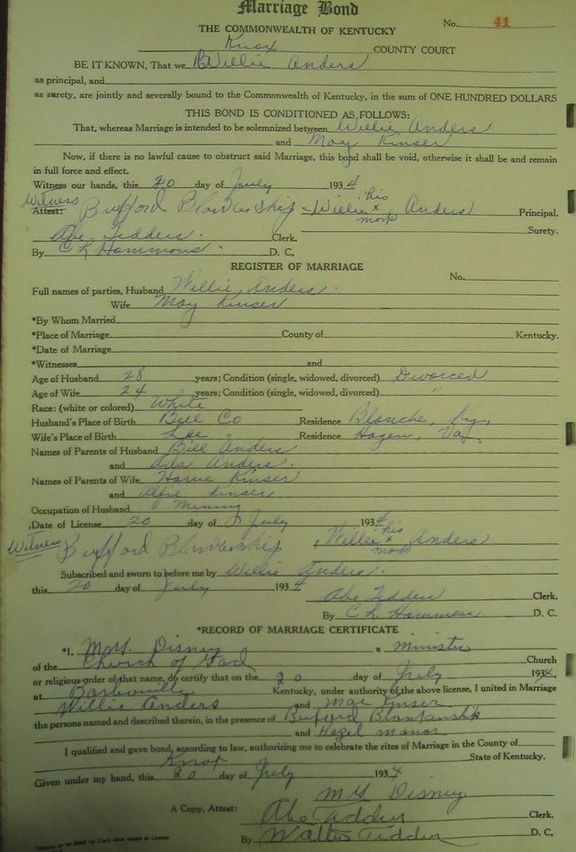 Marriage Bond
No. 41
THE COMMONWEALTH OF KENTUCKY
Knox COUNTY COURT
BE IT KNOWN, That we Willie Anders
as principal, and
as surety, are jointly and severally bound to the Commonwealth of Kentucky, in the sum of ONE HUNDRED DOLLARS
THIS BOND IS CONDITIONED AS FOLLOWS:
That, whereas Marriage is intended to be solemnized between Willie Anders
and May Kinser
Now, if there is no lawful cause to obstruct said Marriage, this bond shall be void, otherwise it shall be and remain
in full force and effect.
Witness our hands, this 20 day of July 1934
Witness
Attest: Bufford Blankenship Willie his x mark Anders Principal.
Surety.
Abe Tedders. Clerk.
By C L Hammons. D. C.
REGISTER OF MARRIAGE
No.
Full names of parties, Husband Willie Anders.
Wife May Kinser
*By Whom Married
*Place of Marriage County of Kentucky.
*Date of Marriage
*Witnesses and
Age of Husband 28 years; Condition (single, widowed, divorced) Divorced
Age of Wife 24 years; Condition (single, widowed, divorced) "
Race: (white or colored) White
Husband's Place of Birth Bell Co Residence Blanche, Ky.
Wife's Place of Birth Lee " Residence Hagen, Va.
Names of Parents of Husband Bill Anders
and Ada Anders.
Names of Parents of Wife Kinser
and Kinser
Occupation of Husband Mining
Date of License 20 day of July 1934
Witness Bufford Blankenship, Willie his x mark Anders
Subscribed and sworn to before me by Willie Anders.
this 20 day of July 1934
Abe Tedders Clerk.
By C. L. Hammons D. C.
*RECORD OF MARRIAGE CERTIFICATE
*I, Mrs. Disney a minister
of the Church of God Church
or religious order of that name, do certify that on the 20 day of July 1934
at Barbourville Kentucky, under authority of the above license, I united in Marriage
Willie Anders and Mae Kinser
the persons named and described therein, in the presence of Buford Blankenship
and Hazel
I qualified and gave bond, according to law, authorizing me to celebrate the rites of Marriage in the County of
Knox State of Kentucky.
Given under my hand, this 20 day of July 1934
Mrs Disney
A Copy, Attest: Abe Tedders Clerk.
By Walter Tedders D. C.